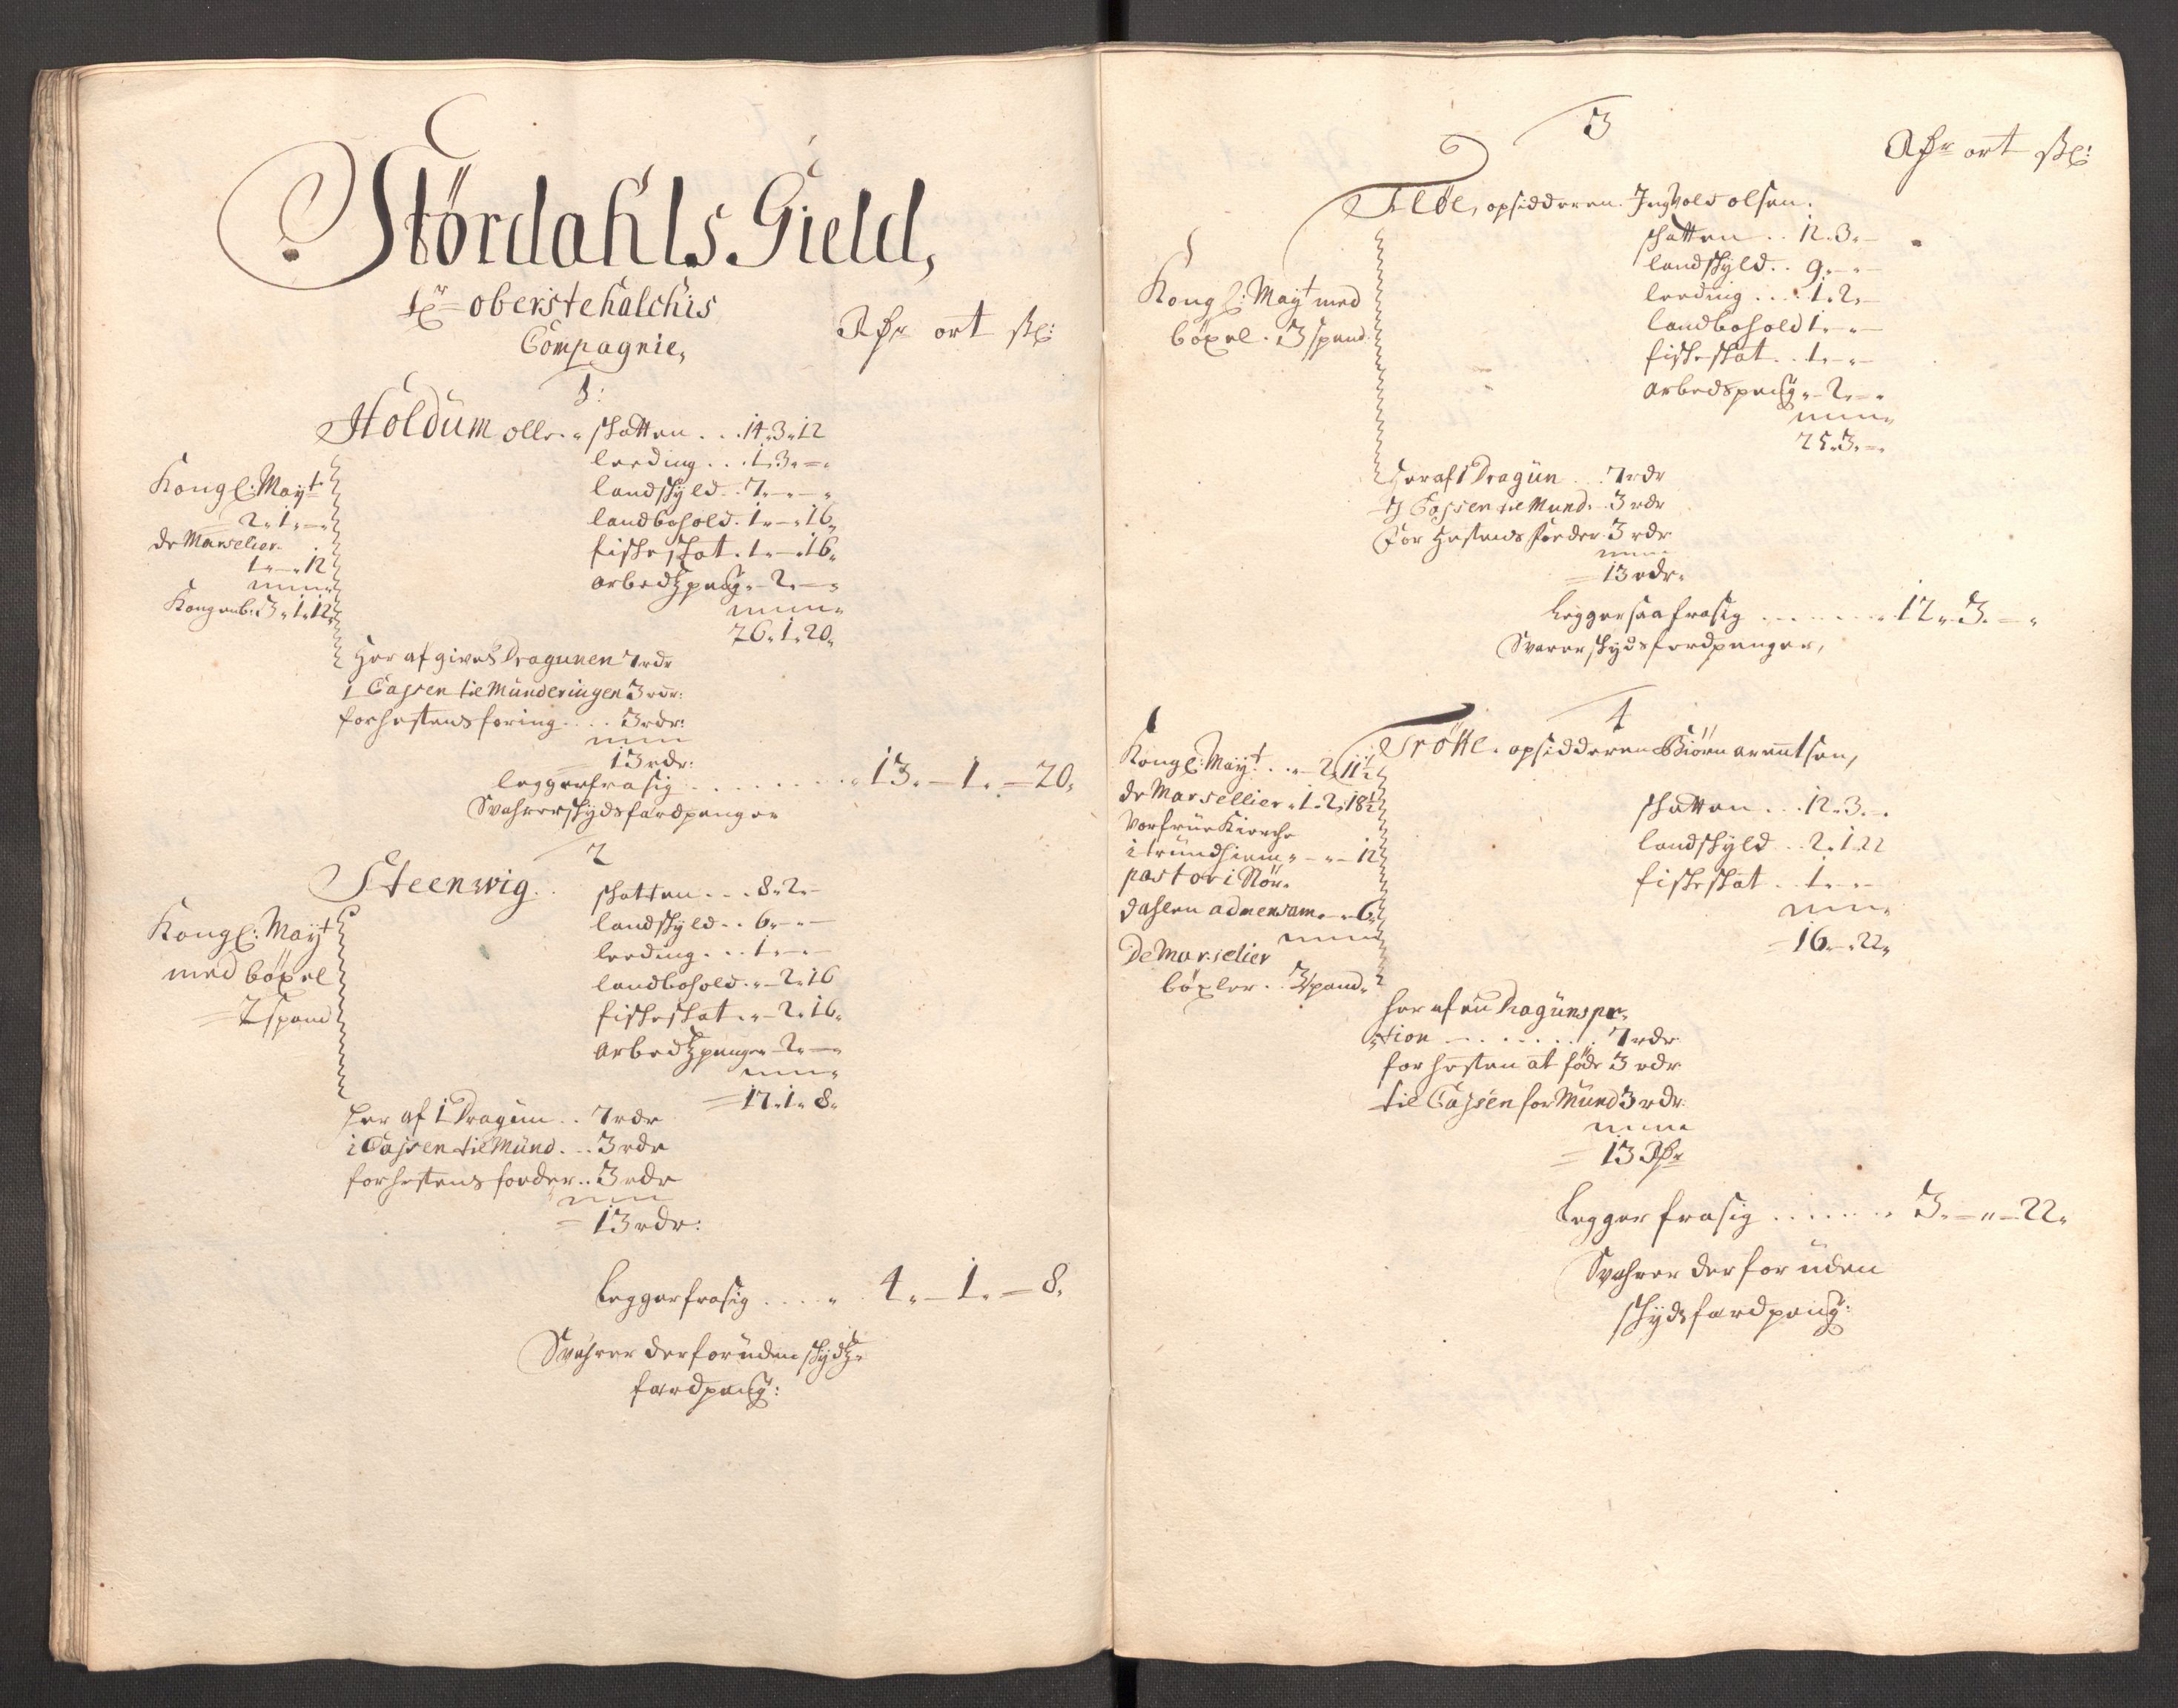 Stördahls Gield,
oberste Kalckis
Compagnie,
Rdr ort sk:
1:
Holdum olle. skatten . . . 14. 3. 12
leeding . . . 1. 3. –
landskyld . . 7. – –
landbohold . 1. – . 16.
fiskeskat . 1. – . 16.
arbedtzpeng. – 2. –
26. 1. 20.
Kongl: Mayt
2. 1. –
de Marselier.
1. – . 12
Kongenb. 3. 1. 12
Her af gives Dragunen 7 rdr
i Cassen til Munderingen 3 rdr:
for hestens foring . . . . 3 rdr:
13 rdr:
legger fra sig . . . . . . . . 13. – 1. – 20.
Svahrer skydsfærdpenger
2
Steenwig . . skatten . . . 8. 2. –
landskyld . . 6. – –
leeding . . . 1. – –
landbohold . – 2. 16
fiskeskat . – 2. 16.
arbedtzpenger – 2. –
17. 1. 8.
Kongl: Mayt
med böxel
2 spand
her af 1 Dragun . . 7 rdr
i Cassen til Mund. . . 3 rdr
for hestens foeder . . 3 rdr
13 rdr:
legger fra sig . . . . 4. – 1. – 8.
Svahrer der foruden skydtz-
færdpeng:
3
Rdr ort sk:
Fløe, opsidderen. Ingvold olsen.
skatten . . 12. 3. –
landskyld . . 9. – –
leeding . . . . 1. 2. –
landbohold 1. – –
fiskeskat . . 1. – –
arbedspeng. – 2. –
25. 3. –
Kongl: Mayt med
böxel . 3 spand
Heraf 1 Dragun . . . 7 rdr
I Cassen til Mund. . 3 rdr
For Hestens foeder . 3 rdr
13 rdr.
legger saa fra sig . . . . . . . 12. 3. –
Svarer skydsferdpenger,
4
Trøite. opsidderen Biörn arentsen,
skatten . . . 12. 3. –
landskyld . . 2. 1. 22
fiskeskat . . 1. – –
16. – . 22.
Kongl: Mayt . . – 2. 11½
de Marsellier . 1. 2. 18½
Vorfrue Kierche
i trundhiem. – . – 12
pastor i Stör.
dahlen ad mensam. – . 6
De Marselier
böxler . . 3 spand.
her af en Draguns por.
tion . . . . . . . 7 rdr
for hesten at föde 3 rdr
til Cassen for Mund 3 rdr.
13 Rdr
legger fra sig . . . . . . 3. – „ – 22.
Svahrer der foruden
skydsfærdpeng: